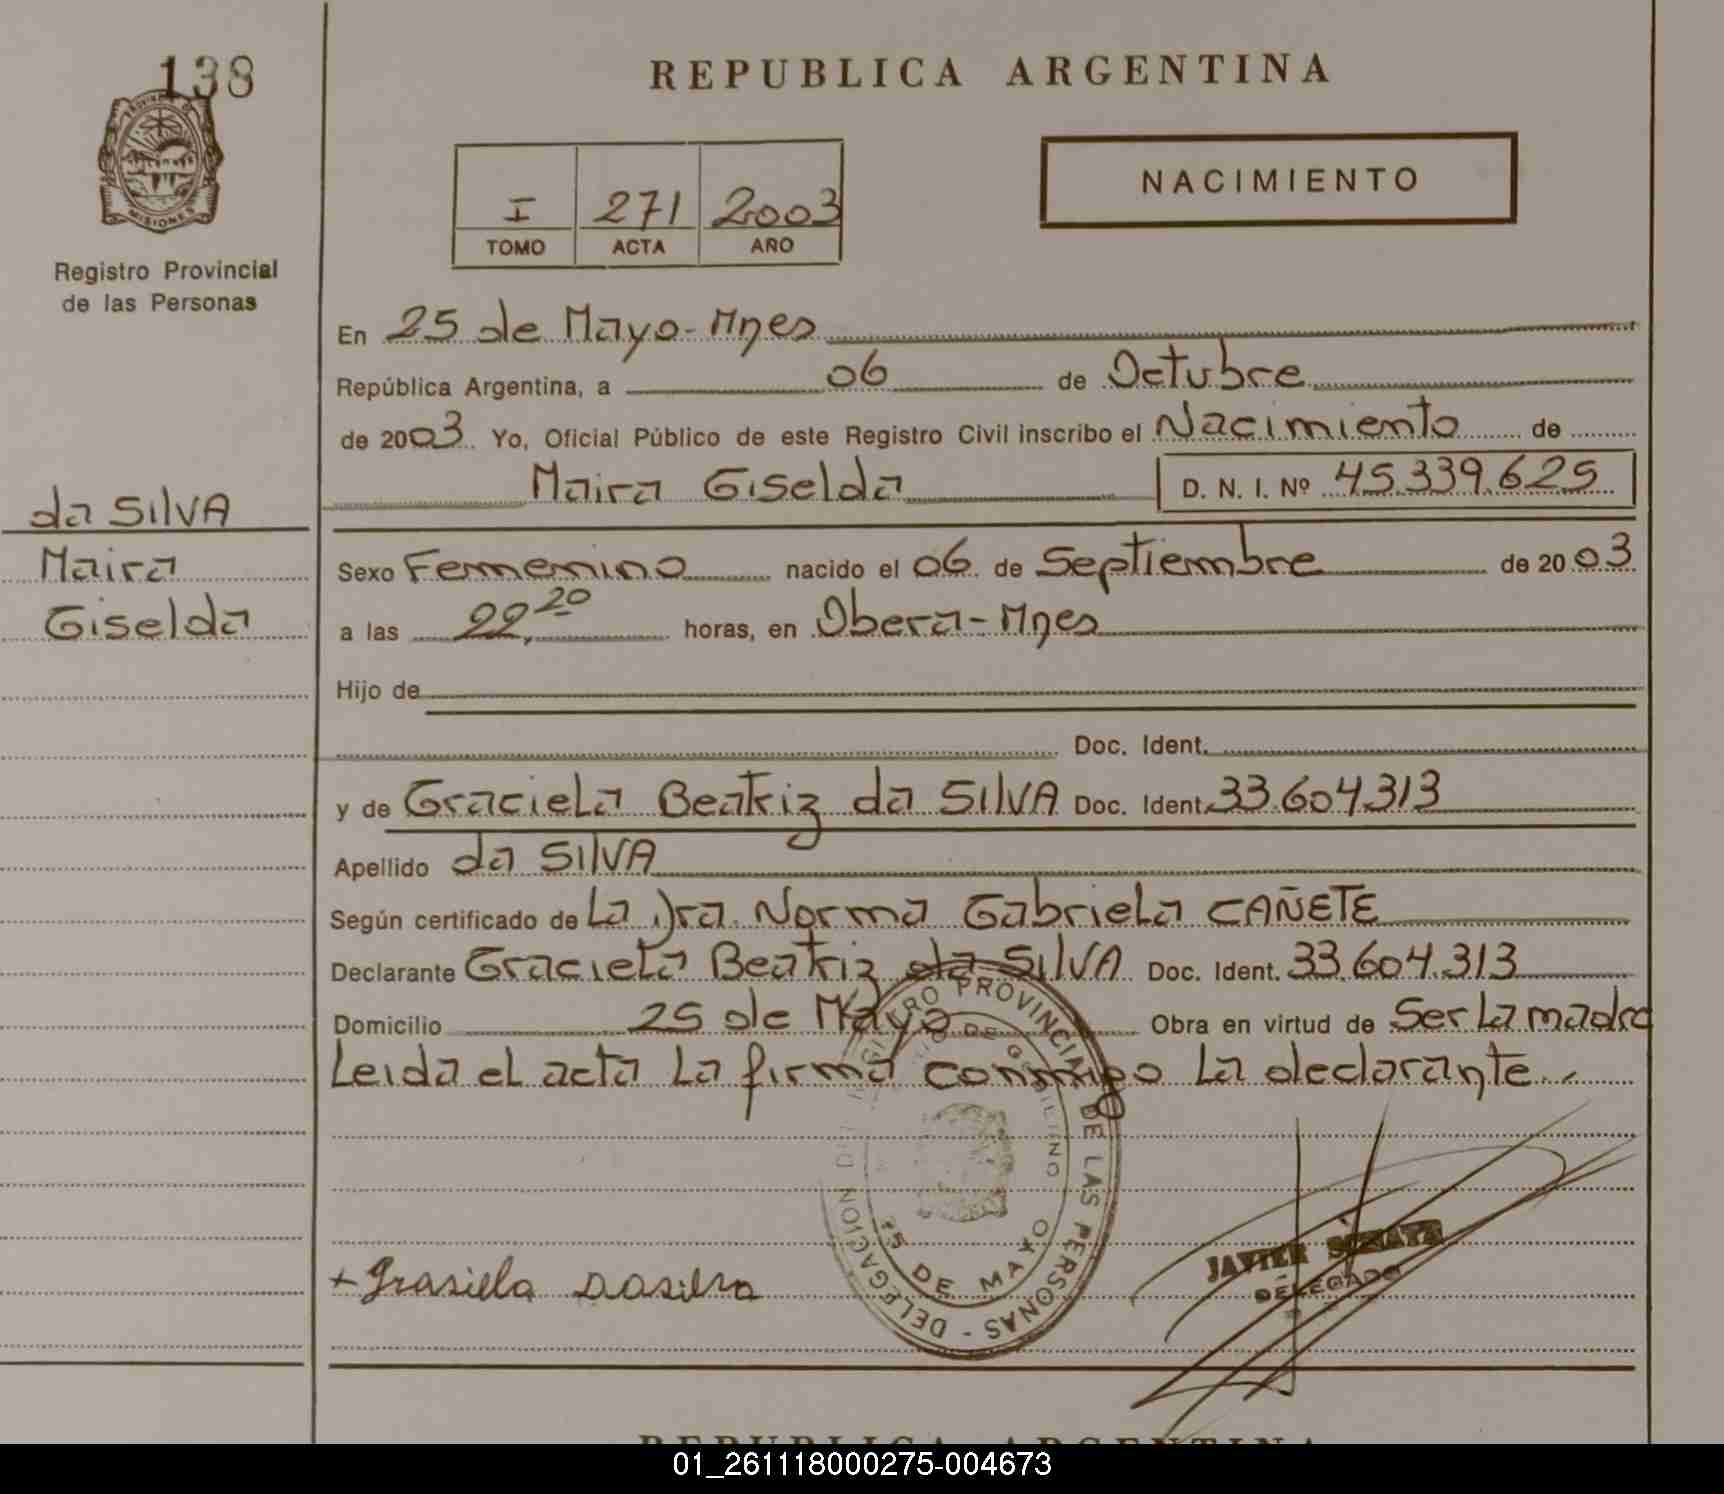 138
PROVINCIA DE
MISIONES
Registro Provincial
de las Personas
da SILVA
Maira
Giselda
REPUBLICA ARGENTINA
I 271 2003
TOMO ACTA AÑO
NACIMIENTO
En 25 de Mayo-Mnes
República Argentina, a 06 de Octubre
de 2003 Yo, Oficial Público de este Registro Civil inscribo el Nacimiento de
Maira Giselda D. N. I. Nº 45.339.625
Sexo Femenino nacido el 06 de Septiembre de 2003
a las 22,20 horas, en Obera-Mnes
Hijo de
Doc. Ident.
y de Graciela Beatriz da SILVA Doc. Ident. 33.604.313
Apellido da SILVA
Según certificado de La Dra. Norma Gabriela CAÑETE
Declarante Graciela Beatriz da SILVA Doc. Ident. 33.604.313
Domicilio 25 de Mayo Obra en virtud de Ser La madre
Leida el acta La firma conmigo La declarante.
REGISTRO PROVINCIAL DE LAS PERSONAS - DELEGACION
DE GOBIERNO
25 DE MAYO
+ Grasiela Dasilva
JAVIER
DELEGADO
REPUBLICA ARGENTINA
01_261118000275-004673